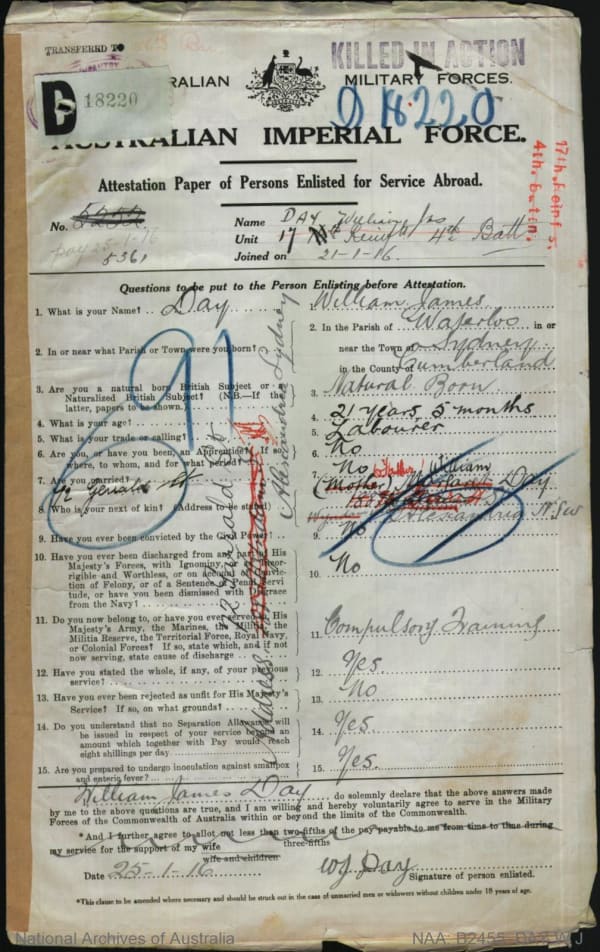 TRANSFERRED TO
KILLED IN ACTION
D 18220
AUSTRALIAN MILITARY FORCES.
D 18220
AUSTRALIAN IMPERIAL FORCE.
Attestation Paper of Persons Enlisted for Service Abroad.
17th. Reinf's.
4th. Battn.
No. 5361
25-1-16
Name DAY William Jas
Unit 17 Reinfts 4th Batt
Joined on 21-1-16.
Questions to be put to the Person Enlisting before Attestation.
1. What is your Name? Day
1. William James
2. In or near what Parish or Town were you born?
2. In the Parish of Waterloo in or
near the Town of Sydney
in the County of Cumberland
3. Are you a natural born British Subject or a
Naturalized British Subject? (N.B.—If the
latter, papers to be shown.)
3. Natural Born
4. What is your age?
4. 21 years 5 months
5. What is your trade or calling?
5. Labourer
6. Are you, or have you been, an Apprentice? If so,
where, to whom, and for what period?
6. No
7. Are you married?
7. No
8. Who is your next of kin? (Address to be stated)
Father William
(Mother) Day
Alexandria N.S.W
Address
Alexandria Sydney
91
9. Have you ever been convicted by the Civil Power?
9. No
10. Have you ever been discharged from any part of His
Majesty's Forces, with Ignominy, or as Incor-
rigible and Worthless, or on account of Convic-
tion of Felony, or of a Sentence of Penal Servi-
tude, or have you been dismissed with Disgrace
from the Navy?
10. No
11. Do you now belong to, or have you ever served in, His
Majesty's Army, the Marines, the Militia, the
Militia Reserve, the Territorial Force, Royal Navy,
or Colonial Forces? If so, state which, and if not
now serving, state cause of discharge
11. Compulsory Training
12. Have you stated the whole, if any, of your previous
service?
12. Yes.
13. Have you ever been rejected as unfit for His Majesty's
Service? If so, on what grounds?
13. No
14. Do you understand that no Separation Allowance will
be issued in respect of your service beyond an
amount which together with Pay would reach
eight shillings per day
14. Yes
15. Are you prepared to undergo inoculation against smallpox
and enteric fever?
15. Yes.
I, William James Day do solemnly declare that the above answers made
by me to the above questions are true, and I am willing and hereby voluntarily agree to serve in the Military
Forces of the Commonwealth of Australia within or beyond the limits of the Commonwealth.
*And I further agree to allot not less than two-fifths of the pay payable to me from time to time during
three-fifths
my service for the support of my wife
wife and children
Date 25-1-16
W J Day
Signature of person enlisted.
*This clause to be amended where necessary and should be struck out in the case of unmarried men or widowers without children under 18 years of age.
National Archives of Australia
NAA: B2455, DAY W J